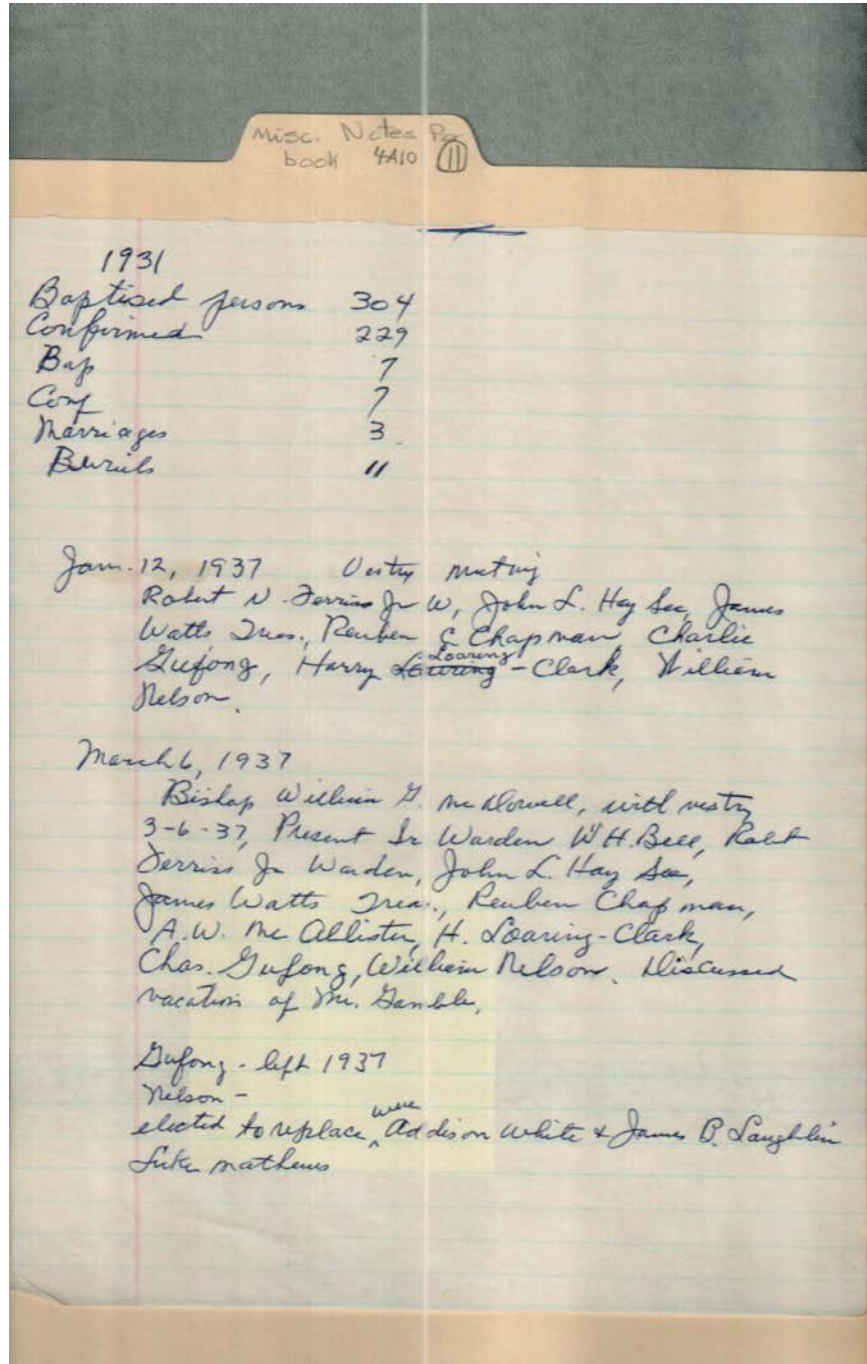 Misc. Notes Par
book 4A10 (11)
1931
Baptised persons 304
Confirmed 229
Bap 7
Conf 7
Marriages 3
Burials 11
Jan. 12, 1937 Vestry meeting
Robert N. Ferriss Jr W, John L. Hay Sec, James
Watts Treas., Reuben C Chapman Charlie
Gufong, Harry Loaring - Clark, William
Nelson.
March 6, 1937
Bishop William G. McDowell, with vestry
3-6-37, Present Sr Warden W H. Bell, Robt
Ferriss Jr Warden, John L. Hay Sec,
James Watts Trea., Reuben Chapman,
A.W. McAllister, H. Loaring-Clark,
Chas. Gufong, William Nelson. Discussed
vacation of Mr. Gamble,
Gufong - left 1937
Nelson -
elected to replace were Addison White & James B. Laughlin
Luke Mathews